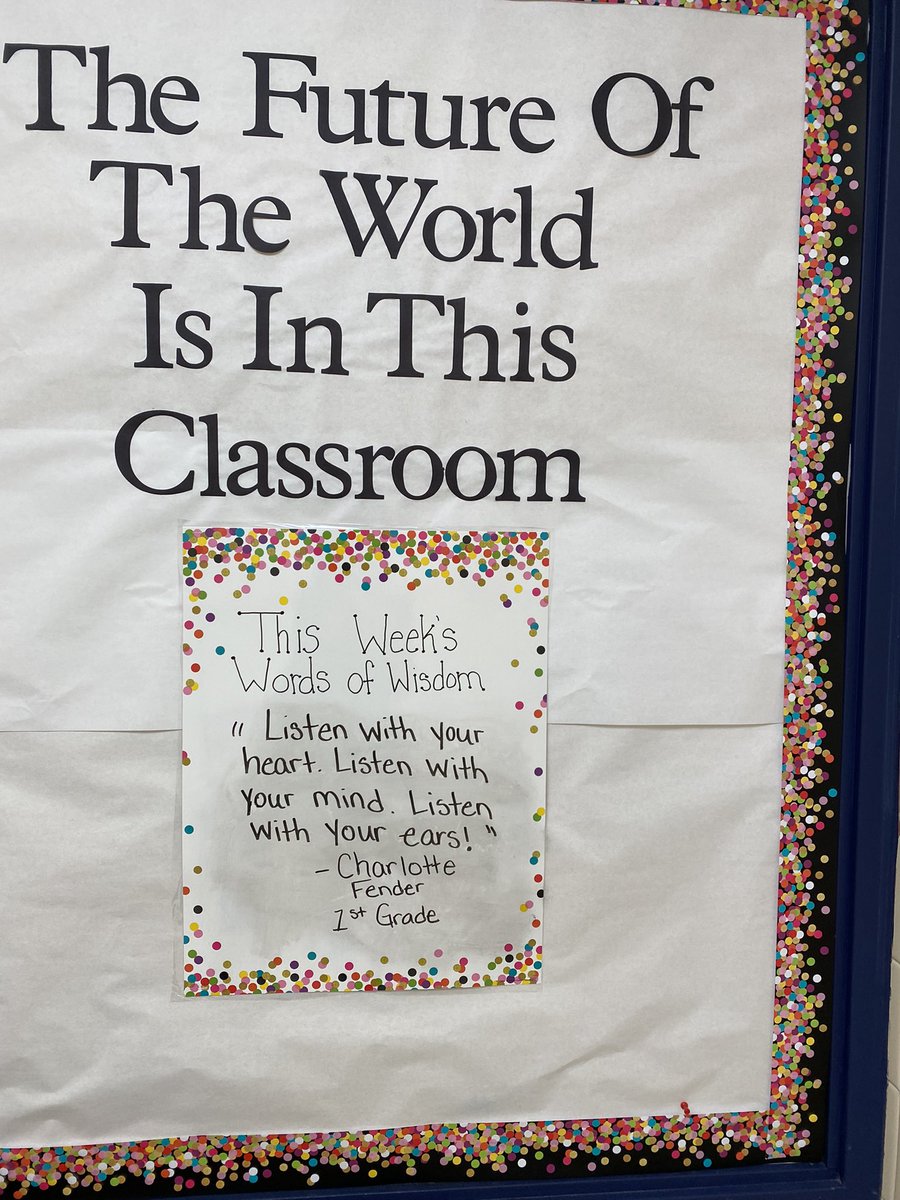 The Future Of
The World
Is In This
Classroom
This Week's
Words of Wisdom
" Listen with your
heart. Listen with
your mind. Listen
with your ears! "
- Charlotte
Fender
1st Grade